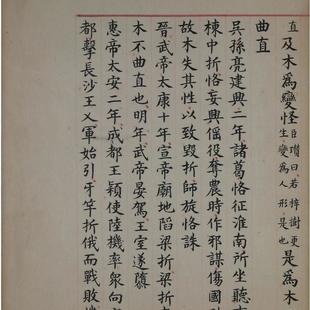 直及木為變怪臣瓚曰若梓樹更生變為人形是也是為木
曲直
吳孫亮建興二年諸葛恪征淮南所坐聽
棟中折恪妄興徭役奪農時作邪謀傷國
故木失其性以致毀折師旋恪誅
晉武帝太康十年宣帝廟地陷梁折
木不曲直也明年武帝晏駕王室遂隳
惠帝太安二年成都王穎使陸機率衆向
都擊長沙王乂軍始引牙竿折俄而戰敗